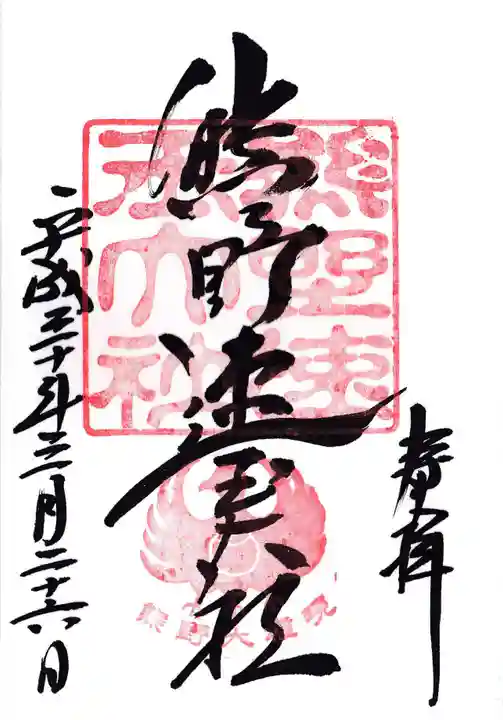 奉拝
熊野速玉大社
平成三十年三月二十六日
熊野速玉大社
熊野大権現